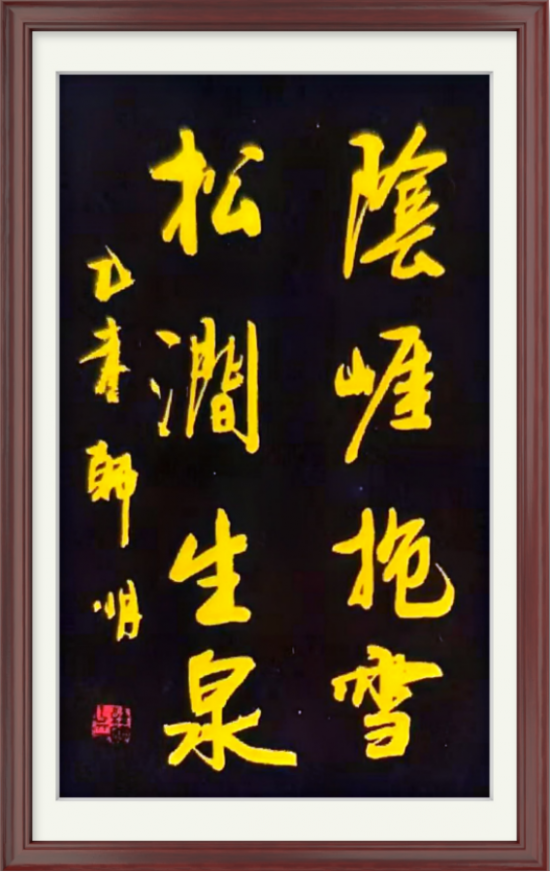 陰崖抱雪
松澗生泉
乙未 明